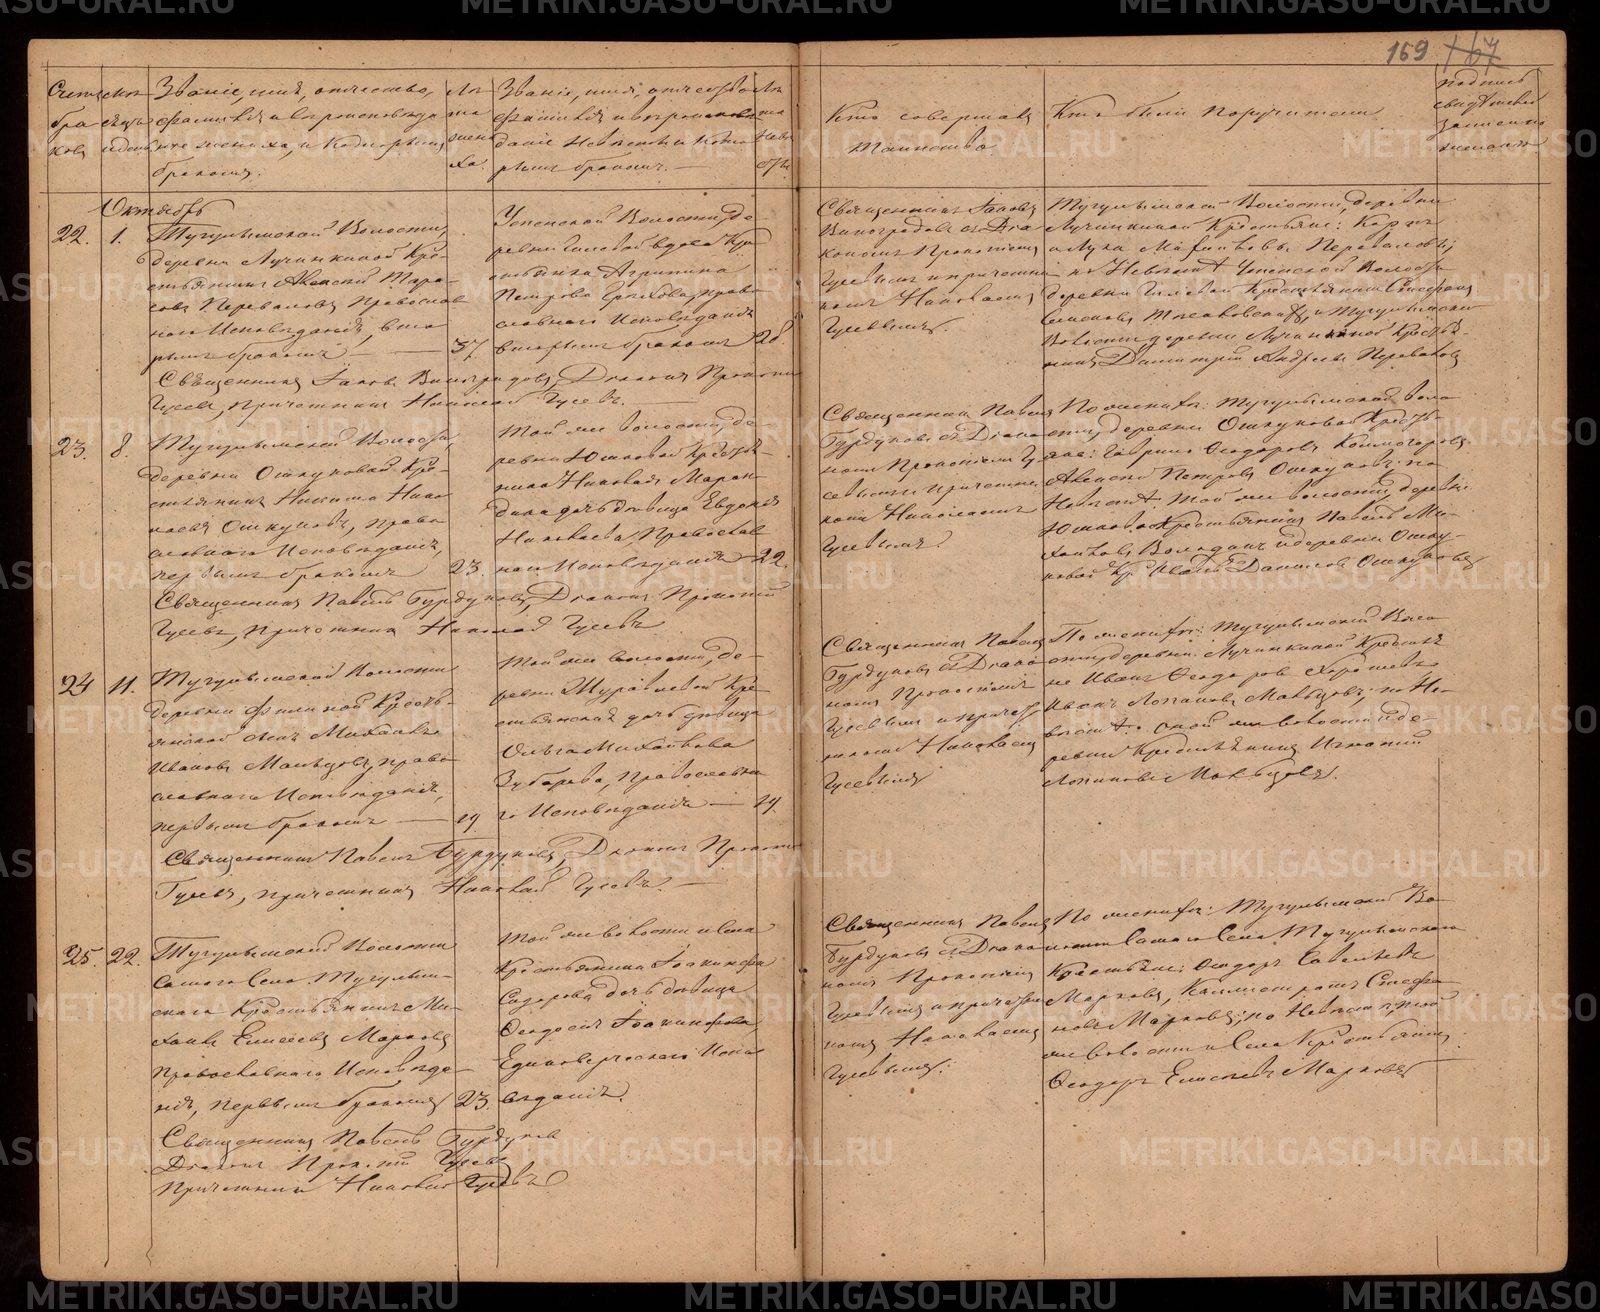 159 167
Счетъ бра ковъ
Мѣ сяцъ и день
Званіе, имя, отчество,
фамилія и вѣроисповѣда
ніе жениха, и которымъ
бракомъ.
Лѣ та жени ха.
Званіе, имя, отчество
фамилія и вѣроисповѣ
даніе Невѣсты и кото
рымъ бракомъ. —
Лѣ та Невѣ сты
Кто совершалъ
таинство
Кто были поручители
подпись
свидѣтелей
записи по
желанію
Октябрь
22. 1. Тугулымской Волости,
деревни Лучинкиной Кре-
стьянинъ Алексѣй Тара-
совъ Переваловъ Православ
наго Исповѣданія, вто
рымъ бракомъ — 37.
Успенской Волости, де-
ревни Гилевой вдова Кре
стьянка Агрипина
Петрова Грехова, право
славнаго Исповѣданія
вторымъ бракомъ 28.
Священникъ Іаковъ Виноградовъ, Діаконъ Прокопій
Гусевъ, Причетникъ Николай Гусевъ. —
Священникъ Іаковъ
Виноградовъ съ Діа
кономъ Прокопіемъ
Гусевымъ и причетни
комъ Николаемъ
Гусевымъ.
Тугулымской Волости, деревни
Лучинкиной Крестьяне: Карпъ
и Лука Михайловы Переваловы;
по Невѣстѣ Успенской Волости
деревни Гилевой Крестьянинъ Стефанъ
Волости деревни Лучинкиной Крестья-
нинъ Димитрій Андреевъ Переваловъ
23. 8. Тугулымской Волости,
деревни Ошкуковой Кре-
стьянинъ Никита Нико
лаевъ Ошкуковъ, право
славнаго Исповѣданія,
первымъ бракомъ 23.
Той же волости, де-
ревни Юшковой Крестья-
нина Николая
дина дочь дѣвица Евдокія
Николаева, Православ
наго Исповѣданія 22.
Священникъ Павелъ Бурдуковъ, Діаконъ Прокопій
Гусевъ, Причетникъ Николай Гусевъ
Священникъ Павелъ
Бурдуковъ съ Діако
номъ Прокопіемъ Гу
севымъ и причетни
комъ Николаемъ
Гусевымъ.
По женихѣ: Тугулымской воло
сти, деревни Ошкуковой Кресть-
яне: Гаврило Ѳеодоровъ Колмогоровъ
Алексѣй Петровъ Ошкуковъ; по
Невѣстѣ: той же волости, деревни
Юшковой Крестьянинъ Павелъ Ми-
хайловъ и деревни Ошку-
ковой Кр. Иванъ Даниловъ Ошкуковъ
24 11. Тугулымской Волости
деревни Филиной Кресть-
янской сынъ Михаилъ
Ивановъ Мальцовъ, право
славнаго Исповѣданія,
первымъ бракомъ — 19
Той же волости, де-
ревни Журавлевой Кре
стьянская дочь дѣвица
Ольга Михайлова
Зубарева, Православна
го Исповѣданія — 19.
Священникъ Павелъ Бурдуковъ, Діаконъ Прокопій
Гусевъ, причетникъ Николай Гусевъ. —
Священникъ Павелъ
Бурдуковъ съ Діако
номъ Прокопіемъ
Гусевымъ и причет
никомъ Николаемъ
Гусевымъ
По женихѣ: Тугулымской Воло
сти, деревни Лучинкиной Крестья
не Иванъ Ѳеодоровъ
Иванъ Мальцовъ; по Не-
вѣстѣ: оной же волости и де-
ревни Крестьянинъ Игнатій
Мальцовъ.
25. 22. Тугулымской Волости
самаго Села Тугулым-
скаго Крестьянинъ Ми-
хаилъ Елисеевъ Марковъ
Православнаго Исповѣда-
нія, первымъ бракомъ 23.
Той же волости и села
Крестьянина Іоакинфа
Сидорова дочь дѣвица
Ѳеодосія Іоакинфова
Единовѣрческаго Испо
вѣданія.
Священникъ Павелъ Бурдуковъ
Діаконъ Прокопій Гусевъ
Причетникъ Николай Гусевъ
Священникъ Павелъ
Бурдуковъ съ Діако
номъ Прокопіемъ
Гусевымъ и причетни
комъ Николаемъ
Гусевымъ.
По женихѣ: Тугулымской Во-
лости Самаго Села Тугулымскаго
Крестьяне: Ѳеодоръ Савельевъ
Марковъ, Калистратъ Стефа
новъ Марковъ; по Невѣстѣ, той
же волости и Села Крестьянинъ
Ѳеодоръ Елисеевъ Марковъ
METRIKI.GASO-URAL.RU